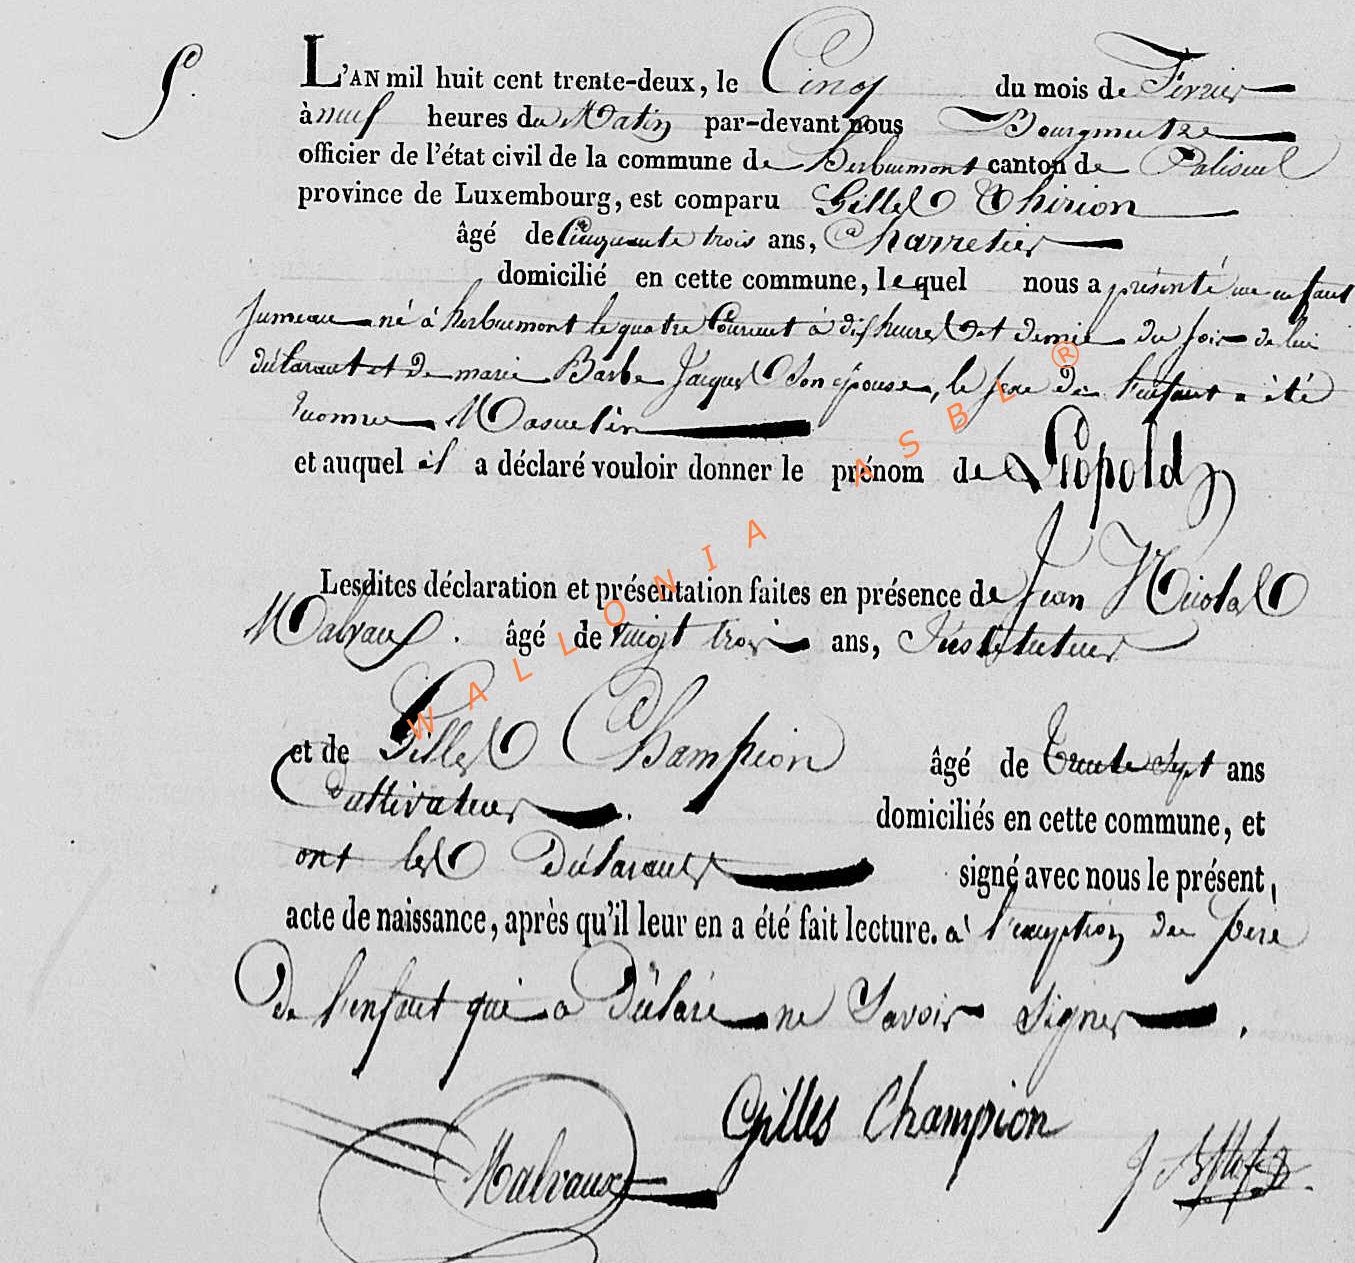 5.
L'AN mil huit cent trente-deux, le Cinq du mois de Fevrier
à neuf heures du Matin par-devant nous Bourgmestre
officier de l'état civil de la commune de herbeumont canton de Paliseul
province de Luxembourg, est comparu Gilles Thirion
âgé de Cinquante trois ans, Charretier
domicilié en cette commune, lequel nous a présenté un enfant
Jumeau né à herbeumont le quatre Courant à dix heures et demie du soir de lui
déclarant et de marie Barbe Jacques Son épouse, le sexe de l'enfant a été
reconnu Masculin
et auquel il a déclaré vouloir donner le prénom de Léopold
Lesdites déclaration et présentation faites en présence de Jean Nicolas
Malvaux. âgé de vingt trois ans, Instituteur
et de Gilles Champion âgé de Trente Sept ans
Cultivateur. domiciliés en cette commune, et
ont les Déclarants signé avec nous le présent,
acte de naissance, après qu'il leur en a été fait lecture. a l'exception du père
De l'enfant qui a Déclaré ne Savoir Signer.
Gilles Champion
Malvaux
WALLONIA ASBL ®